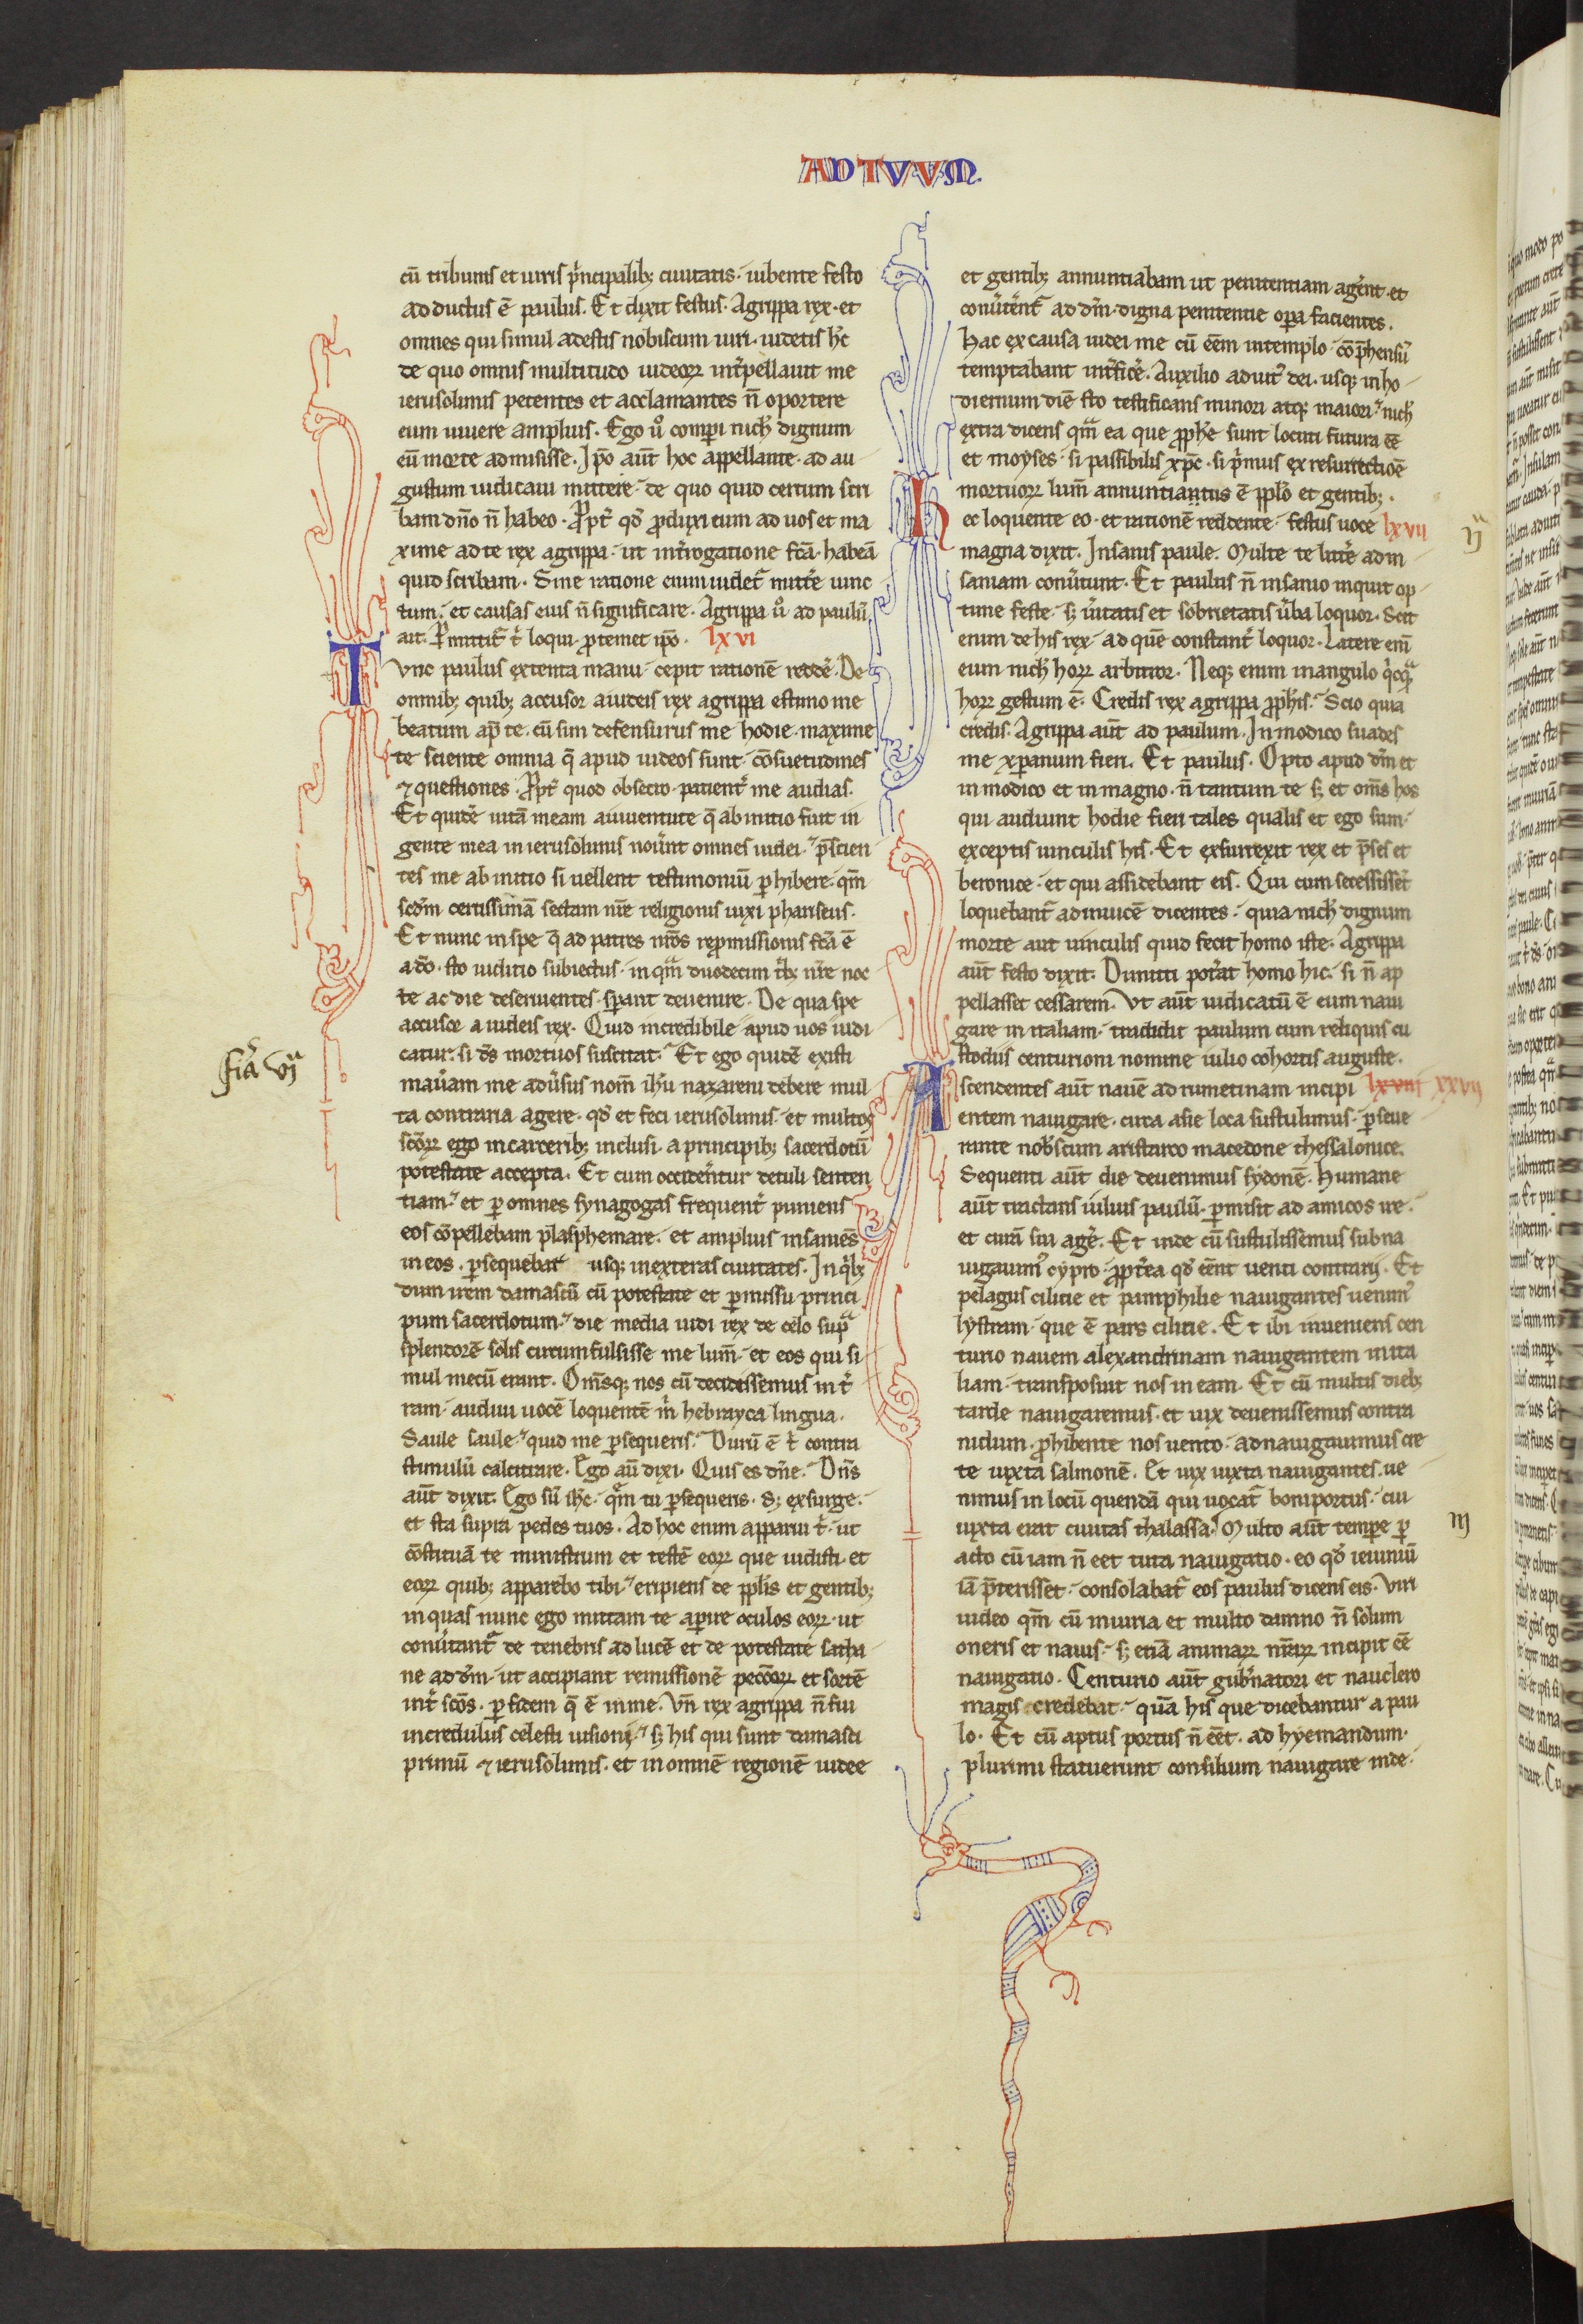 ADTVVM.
cū tribunis et uiris p̄ncipalib; ciuitatis. iubente festo
adductus ē paulus. Et dixit festus. Agrippa rex. et
omnes qui simul adestis nobiscum uiri. uidetis h̄c
de quo omnis multitudo iudeoꝝ int̄pellauit me
ierusolimis petentes et acclamantes n̄ oportere
eum uiuere amplius. Ego ů comperi nich̄ dignum
eū morte admisisse. Ip̄o aūt hoc appellante. ad au
gustum iudicaui mittere. de quo quid certum scri
bam dn̄o n̄ habeo. ꝓpt̄ qd̄ ꝓduxi eum ad uos et ma
xime ad te rex agrippa. ut int̄rogatione fc̄ā. habeā
quid scribam. Sine ratione enim uidet᷑ mitt̄e uinc
tum. et causas eius n̄ significare. Agrippa ů ad paulū
ait. ꝑmittit᷑ t̄ loqui. ꝓ temet ip̄o. lxvi
Tunc paulus extenta manu. cepit rationē redde᷑. De
omnib; quib; accusor a iudeis rex agrippa estimo me
beatum ap̄ te. cū sim defensurus me hodie. maxime
te sciente omnia q̄ apud iudeos sunt. cōsuetudines
⁊ questiones. ꝓpt̄ quod obsecro. patient̄ me audias.
Et quidē uitā meam a iuuentute q̄ ab initio fuit in
gente mea in ierusolimis nou̅nt omnes iudei. p̄scien
tes me ab initio si uellent testimoniū ꝑhibere. qm̄
scd̄m certissimā sectam nr̄e religionis uixi phariseus.
Et nunc in spe q̄ ad patres nr̄os repmissionis fc̄ā ē
a dō. sto iuditio subiectus. in qm̄ duodecim t̄b; nr̄e noc
te ac die deseruientes. sꝑant deuenire. De qua spe
accusor a iudeis rex. Quid incredibile apud uos iudi
catur. si dś mortuos suscitat. Et ego quidē existi
mau̅am me adu̅sus nom̄ ih̄u naxareni debere mul
ta contraria agere. qd̄ et feci ierusolimis. et multos
scōꝝ ego in carcerib; inclusi. a principib; sacerdotū
potestate accepta. Et cum occident᷑ur detuli senten
tiam. et ꝑ omnes synagogas frequent̄ puniens
eos cōpellebam plasphemare. et amplius insaniēs
in eos. ꝑsequebar usq; in exteras ciuitates. In qb;
dum irem damascū cū potestate et ꝑmissu princi
pum sacerdotum. die media uidi rex de celo supra
splendorē solis circumfulsisse me lum̄. et eos qui si
mul mecū erant. Om̄sq; nos cū decidissemus in t̄
ram. audiui uocē loquentē m̄ hebrayca lingua.
Saule saule. quid me ꝑsequeris. Durū ē t̄ contra
stimulū calcitrare. Ego aū dixi. Quis es dn̄e. Dn̄s
aūt dixit. Ego sū ih̄c. qm̄ tu ꝑsequeris. S; exsurge.
et sta supra pedes tuos. Ad hoc enim apparui t̄. ut
cōstituā te ministrum et testē eoꝝ que uidisti. et
eoꝝ quib; apparebo tibi. eripiens de ppl̄is et gentib;
in quas nunc ego mittam te aꝑire oculos eoꝝ. ut
conu̅tant᷑ de tenebris ad lucē et de potestate satha
ne ad dm̄. ut accipiant remissionē peccōꝝ et sortē
int̄ scōs. ꝑ fidem q̄ ē in me. Vn̄ rex agrippa n̄ fui
incredulus celesti uisioni. s; his qui sunt damasci
primū ⁊ ierusolimis. et in omnē regionē iudee
fiā vj
et gentib; annuntiabam ut penitentiam ager̄nt. et
conu̅tēnt᷑ ad dm̄. digna penitentie oꝑa facientes.
Hac ex causa iudei me cū eēm in templo. cōp̄hensū
temptabant int̄fice᷑. Auxilio adiut᷑ dei. usq; in ho
diernum diē sto testificans minori atq; maiori. nich̄
extra dicens qm̄ ea que ꝓph̄e sunt locuti futura eē
et moyses. si passibilis xp̄c. si p̄mus ex resurrectioē
mortuoꝝ lum̄ annuntianus ē ppl̄o et gentib;.
Hec loquente eo. et rationē reddente. festus uoce lxvii
magna dixit. Insanis paule. Multe te litt̄e ad in
saniam conu̅tunt. Et paulus n̄ insanio inquit op
time feste. s; u̅itatis et sobrietatis u̅ba loquor. Scit
enim de his rex. ad quē constant̄ loquor. Latere em̄
eum nich̄ hoꝝ arbitror. Neq; enim in angulo qcq̄
hoꝝ gestum ē. Credis rex agrippa ꝓph̄is. Scio quia
credis. Agrippa aūt ad paulum. In modico suades
me xp̄anum fieri. Et paulus. Opto apud dm̄ et
in modico et in magno. n̄ tantum te s; et om̄s hos
qui audiunt hodie fieri tales qualis et ego sum.
exceptis uinculis his. Et exsurrexit rex et p̄ses et
beronice. et qui assidebant eis. Qui cum secessisset᷑
loquebant᷑ ad inuicē dicentes. quia nich̄ dignum
morte aut uinculis quid fecit homo iste. Agrippa
aūt festo dixit. Dimitti pot̄at homo hic. si n̄ ap
pellasset cessarem. Vt aūt iudicatū ē eum naui
gare in italiam. tradidit paulum cum reliquis cu
stodiis centurioni nomine iulio cohortis auguste.
Ascendentes aūt nauē adrumetinam incipi lxviii xxvii
entem nauigare. circa asie loca sustulimus. ꝑseue
rante nob̄scum aristarco macedone thessalonice.
Sequenti aūt die deuenimus sydonē. Humane
aūt tractans iulius paulū. ꝑmisit ad amicos ire.
et curā sui age᷑. Et inde cū sustulissemus subna
uigauim᷒ cypro. ꝓpt̄ea qd̄ eēnt uenti contrarij. Et
pelagus cilicie et pamphilie nauigantes uenim᷒
lystram. que ē pars cilicie. Et ibi inueniens cen
turio nauem alexandrinam nauigantem in ita
liam. transposuit nos in eam. Et cū multis dieb;
tarde nauigaremus. et uix deuenissemus contra
nidum. ꝓhibente nos uento. adnauigauimus cre
te iuxta salmonē. Et uix iuxta nauigantes. ue
nimus in locū quendā qui uocat᷑ boniportus. cui
iuxta erat ciuitas thalassa. Multo aūt tempore ꝑ
acto cū iam n̄ eet tuta nauigatio. eo qd̄ ieiuniū
iā p̄terisset. consolabat᷑ eos paulus dicens eis. Viri
uideo qm̄ cū iniuria et multo damno n̄ solum
oneris et nauis. s; etiā animaꝝ nr̄aꝝ incipit eē
nauigatio. Centurio aūt gub̄natori et nauclero
magis credebat. quā his que dicebantur a pau
lo. Et cū aptus portus n̄ eēt. ad hyemandum.
plurimi statuerunt consilium nauigare inde.
ijª
iij